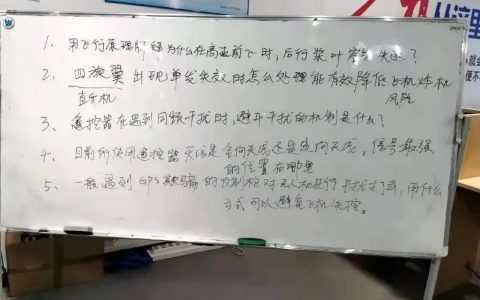 1、用飞行原理解释为什么在高速前飞时,后行桨叶容易失速?
2、四旋翼出现单发失效时怎么处理能有效降低飞机炸机
直升机
风险
3、遥控器在遇到同频干扰时,避开干扰的机制是什么?
4、目前所使用遥控器天线是全向天线还是定向天线,信号最强
的位置在哪里
5、一般遇到GPS欺骗的 对无人机进行干扰打击,用什么
方式可以避免飞机失控。
从这里